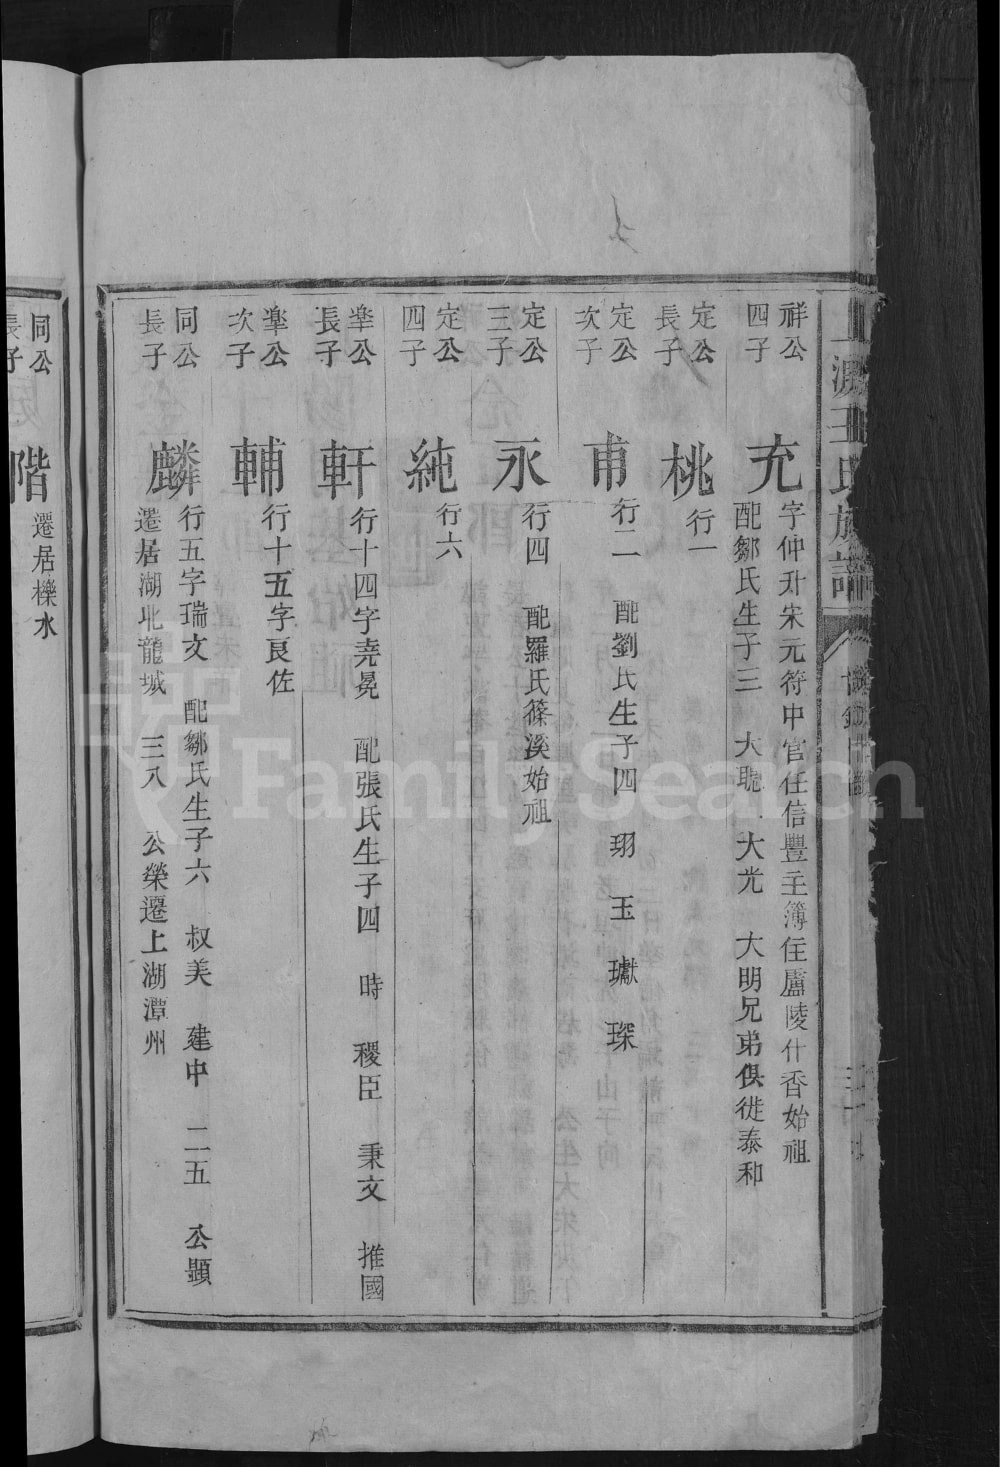 王氏族譜
祥公
四子
充
字仲升宋元符中官任信豐主簿住廬陵什香始祖
配鄒氏生子三 大聪 大光 大明兄弟俱徙泰和
定公
長子
桃
行一
定公
次子
甫
行二 配劉氏生子四 玥 玉 瓛 琛
定公
三子
永
行四 配羅氏篠溪始祖
定公
四子
純
行六
犖公
長子
軒
行十四字堯冕 配張氏生子四 時 稷臣 秉文 推國
犖公
次子
輔
行十五字良佐
同公
長子
麟
行五字瑞文 配鄒氏生子六 叔美 建中 二五 公顯
遷居湖北龍城 三八 公榮遷上湖潭州
同公
長子
階
遷居櫟水
FamilySearch